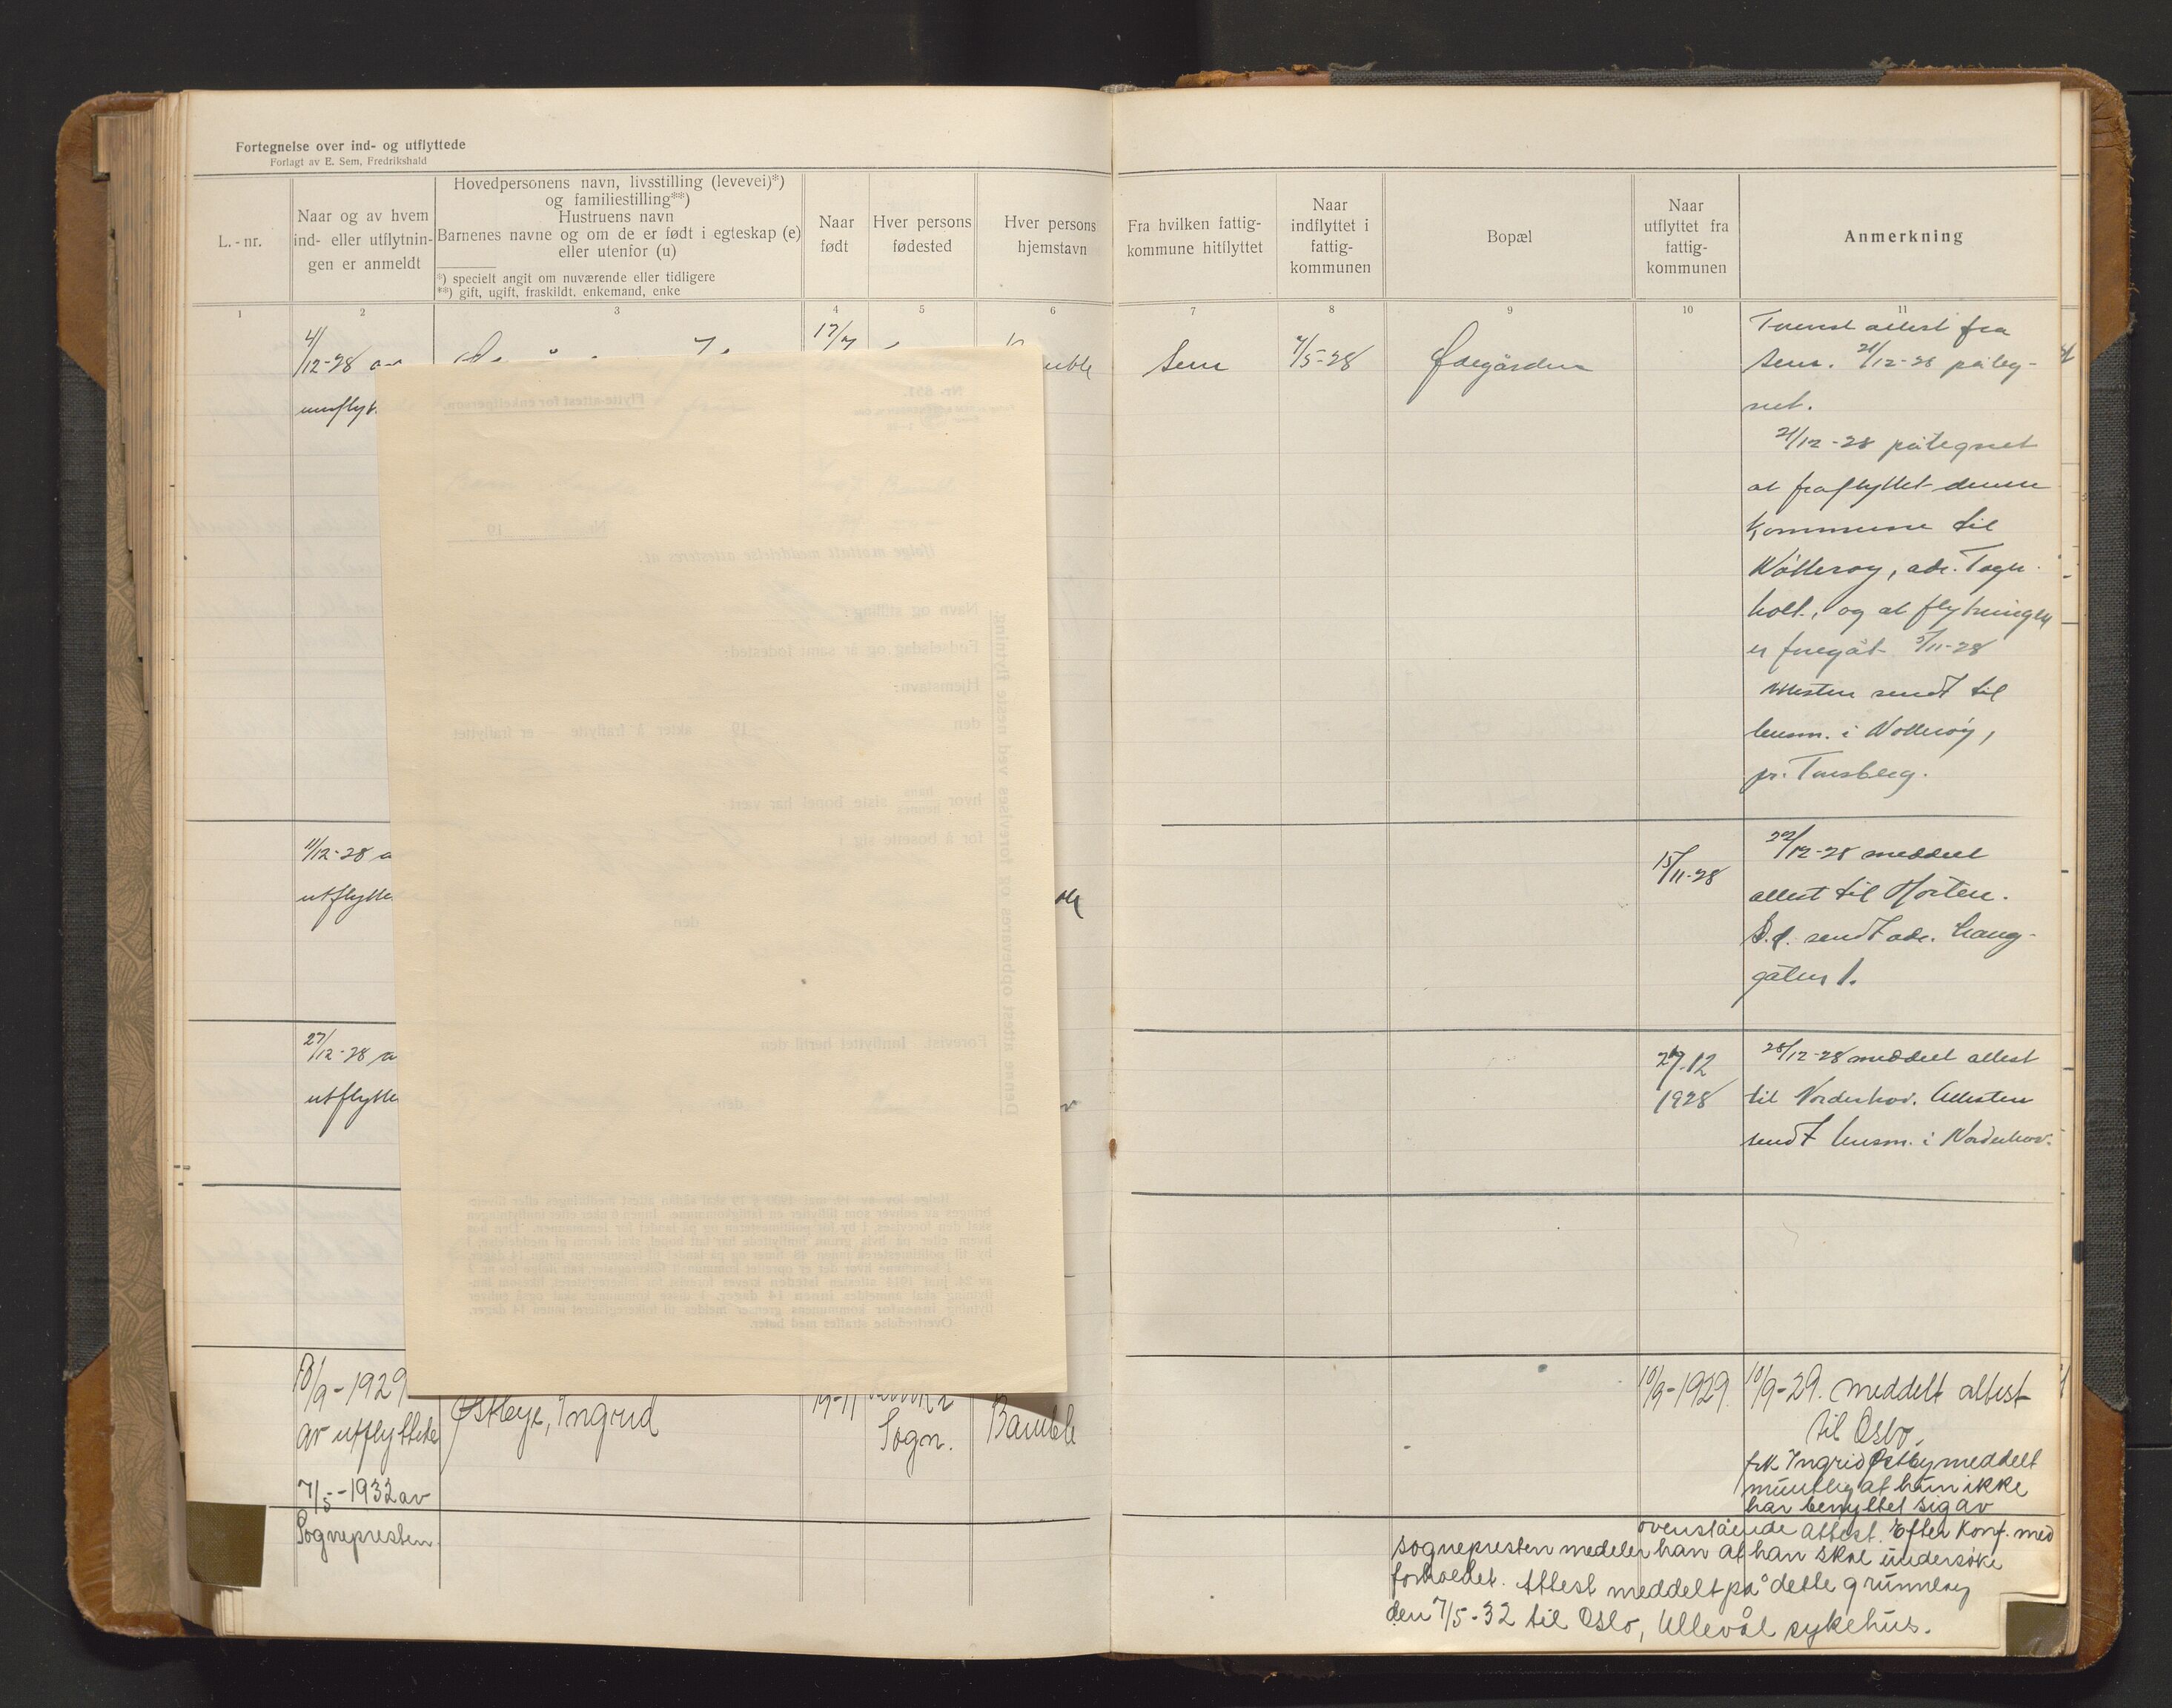 Fortegnelse over ind- og utflyttede
Forlagt av E. Sem, Fredrikshald
L.-nr.
Naar og av hvem
ind- eller utflytnin-
gen er anmeldt
Hovedpersonens navn, livsstilling (levevei)*)
og familiestilling**)
Hustruens navn
Barnenes navne og om de er født i egteskap (e)
eller utenfor (u)
*) specielt angit om nuværende eller tidligere
**) gift, ugift, fraskildt, enkemand, enke
Naar
født
Hver persons
fødested
Hver persons
hjemstavn
Fra hvilken fattig-
kommune hitflyttet
Naar
indflyttet i
fattig-
kommunen
Bopæl
Naar
utflyttet fra
fattig-
kommunen
Anmerkning
1 2 3 4 5 6 7 8 9 10 11
4/12-28
17/7
Sem
4/5-28
Ødegården
attest fra
Sem. 21/12-28 påteg-
net.
21/12-28 påtegnet
at fraflyttet denne
kommune til
Nøtterøy, adr.
holt, og at flytningen
er foregåt 3/11-28
Attesten sendt til
lensm. i Nøtterøy,
pr. Tønsberg.
11/12-28
utflytte
15/11-28
22/12-28 meddelt
attest til Horten.
S.d. sendt adr. Lang-
gaten 1.
27/12-28
utflytte
27.12
1928
28/12-28 meddelt attest
til Norderhov. Attesten
sendt lensm. i Norderhov.
Nr. 651.
Flytte-attest for enkeltperson.
Nr. 19
Ifølge mottatt meddelelse attesteres at:
Navn og stilling:
Fødselsdag og år samt fødested:
Hjemstavn:
den 19 akter å fraflytte — er fraflyttet
hvor hans hennes siste bopel har vært:
for å bosette sig i
den
Forevist. Innflyttet hertil den
den
Denne attest opbevares og forevises ved neste flytning.
Overtredelse straffes med bøter.
10/9-1929
av utflyttede
Østbye, Ingrid
19-11
Sogn.
Bamble
10/9-1929.
10/9-29. meddelt attest
til Oslo.
frk Ingrid Østby meddelt
muntlig at hun ikke
har benyttet sig av
ovenstående attest. Efter Konf. med
sognepresten medeler han at han skal undersøke
forholdet. Attest meddelt på dette grunnlag
den 7/5-32 til Oslo, Ullevål sykehus.
7/5-1932 av
Sognepresten